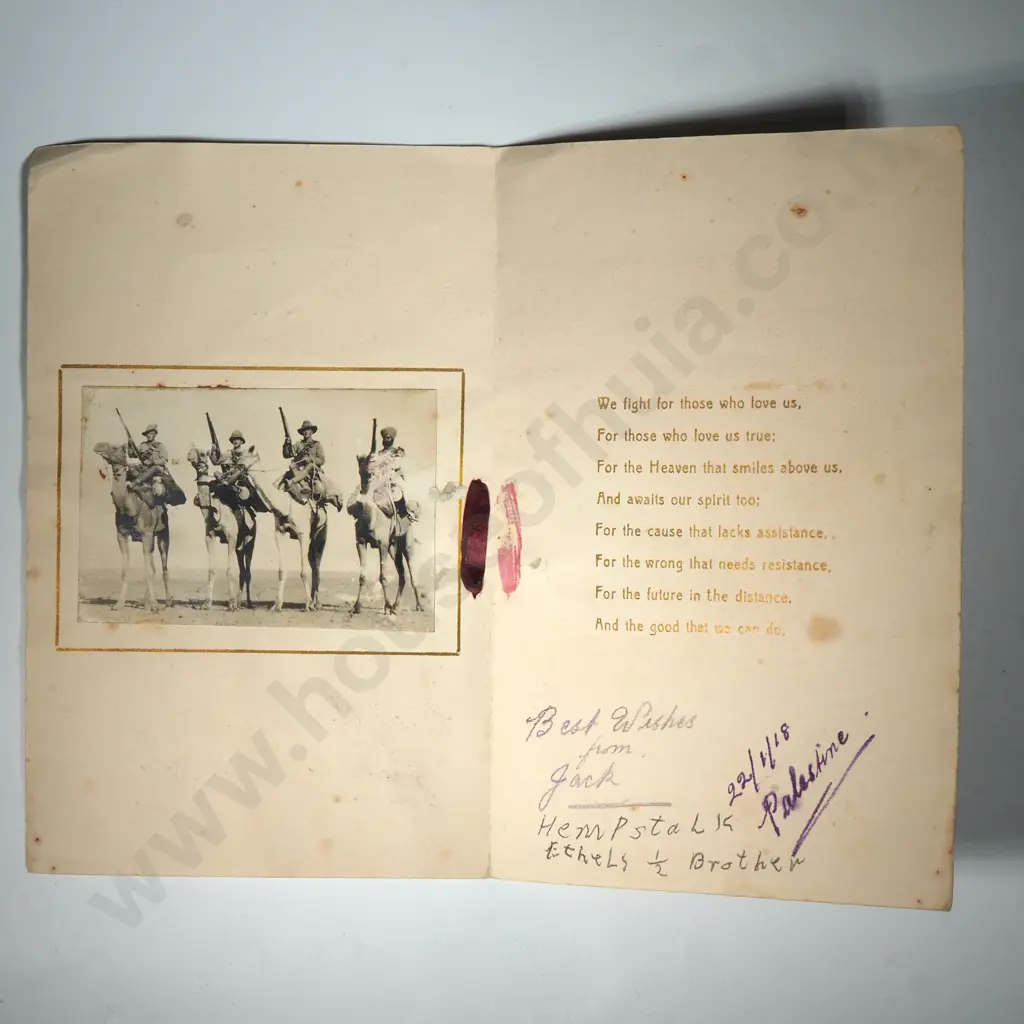 We fight for those who love us,
For those who love us true;
For the Heaven that smiles above us,
And awaits our spirit too;
For the cause that lacks assistance,
For the wrong that needs resistance,
For the future in the distance,
And the good that we can do.
Best Wishes
from
Jack
22/1/18
Palestine
HempstaLK
EtheLs 1/2 Brother
www.houseofhuia.co.n